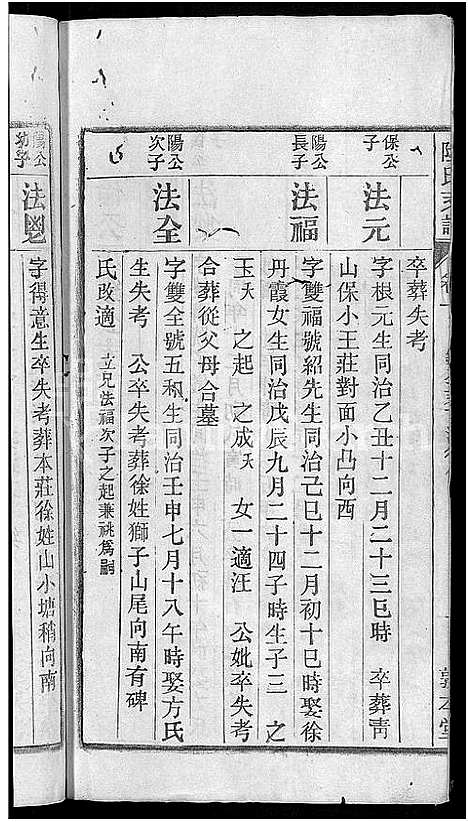 卒葬失考
保公
子
法元
字根元生同治乙丑十二月二十三巳時 卒葬靑
山保小王莊對面小凸向西
陽公
長子
法福
字雙福號紹先生同治己巳十二月初十巳時娶徐
丹霞女生同治戊辰九月二十四子時生子三 之
玉夭 之起 之成夭 女一適汪 公妣卒失考
合葬從父母合墓
陽公
次子
法全
字雙全號五和生同治壬申七月十八午時娶方氏
生失考 公卒失考葬徐姓獅子山尾向南有碑
氏改適 立兄法福次子之起兼祧爲嗣
陽公
幼子
法
字得意生卒失考葬本莊徐姓山小塘稍向南
敦本堂